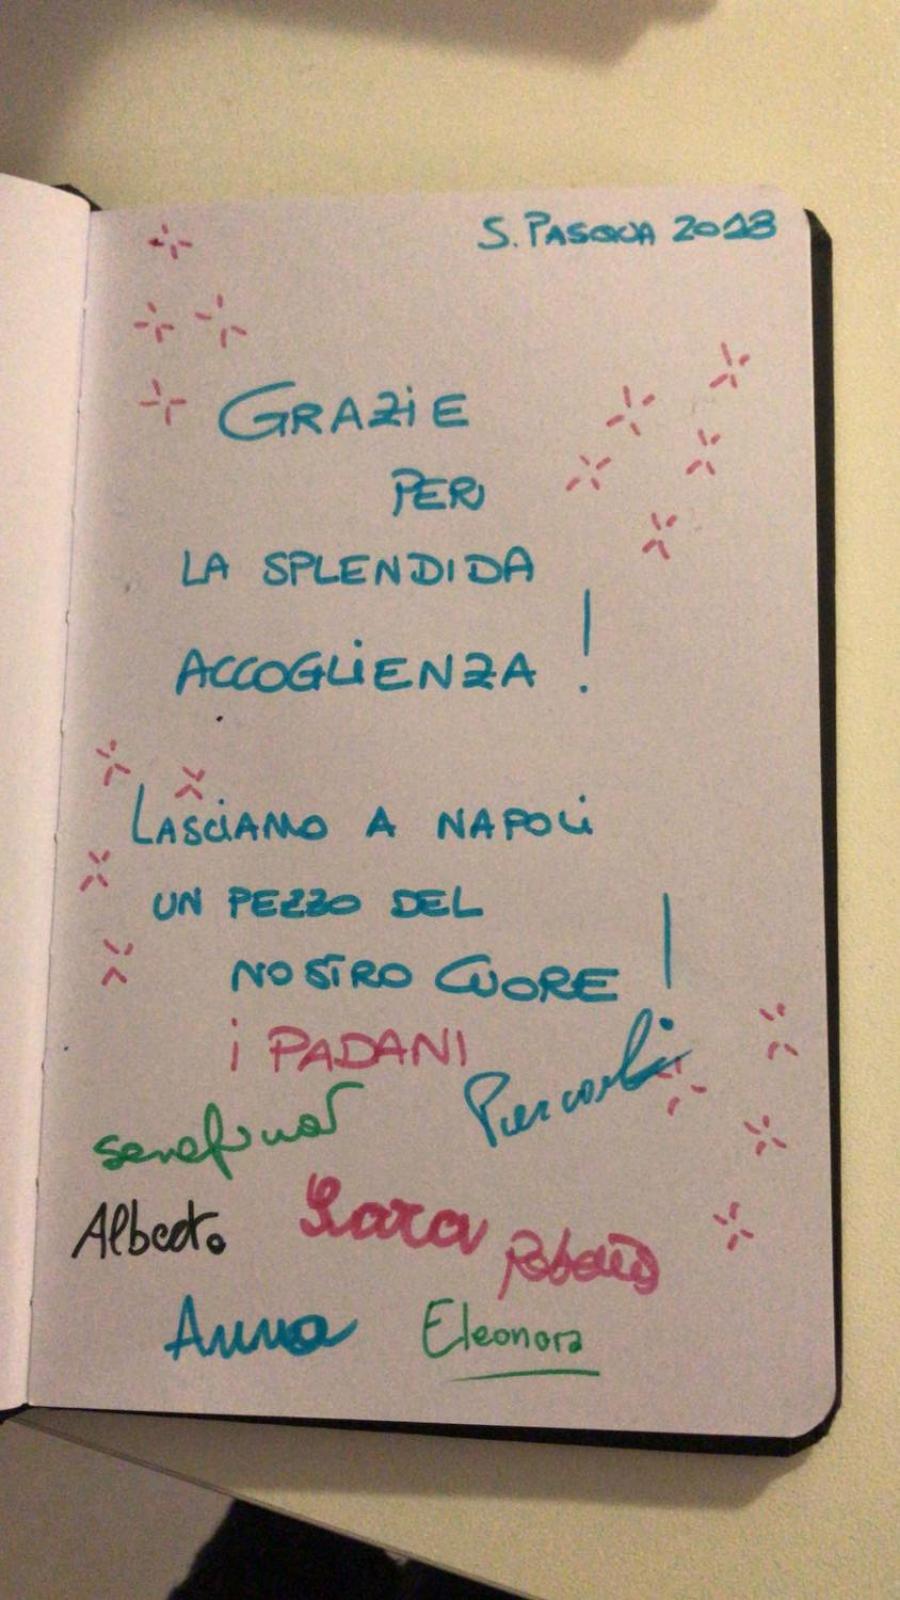 S. PASQUA 2018
GRAZIE
PER
LA SPLENDIDA
ACCOGLIENZA!
LASCIAMO A NAPOLI
UN PEZZO DEL
NOSTRO CUORE!
i PADANI
Piercarlo
Serafina
Alberto
Sara
Roberto
Anna
Eleonora